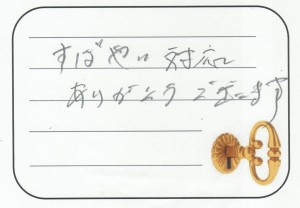 すばやい対応
ありがとうございます